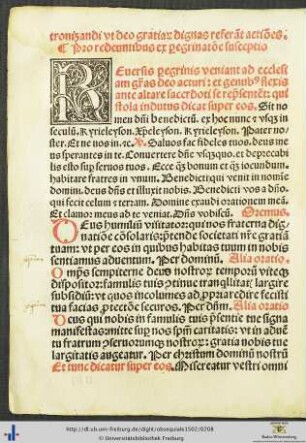 tronizandi vt deo gratiaꝝ dignas referāt actiōes.
¶ Pro redeuntibus ex pegrinatōe susceptio
REuersis pegrinis veniant ad ecclesi
am gr̄as deo acturi: et genubꝰ flexis
ante altare sacerdoti se repsentēt: qui
stola indutus dicat super eos. Sit no
men dñi benedictū. ex hoc nunc ⁊ vsqꝫ in
seculū. Kyrieleyson. Xpeleyson. Kyrieleyson. Pater no-
ster. Et ne nos in. ⁊c. V. Saluos fac fideles tuos. deus me
us sperantes in te. Conuertere dñe vsqꝫquo. et deprecabi
lis esto sup seruos tuos. Ecce qͣꝫ bonum et qͣꝫ iocundum.
habitare fratres in vnum. Benedicti qui venit in nomīe
domini. deus dñs et illuxit nobis. Benedicti vos a dño.
qui fecit celum ⁊ terram. Domine exaudi orationem meā.
Et clamor meus ad te veniat. Dñs vobiscū. Oremus.
DEus humiliū visitator: qui nos fraterna dig-
natiōe cōsolaris: ptende societati nr̄e gratiā
tuam: vt per eos in quibus habitas tuum in nobis
sentiamus aduentum. Per dominū. Alia oratio.
Omps sempiterne deus nostroꝝ temporū viteqꝫ
dispositor: famulis tuis ↄtinue tranqllitatꝭ largire
subsidiū: vt quos incolumes ad ppria redire fecisti
tua facias ptectiōe securos. Per dñm. Alia oratio
Deus qui nobis in famulis tuis psentie tue signa
manifestas: mitte sup nos spm̄ caritatis: vt in aduē
tu fratrum ⁊ seruorumqꝫ nostroꝝ: gratia nobis tue
largitatis augeatur. Per christum dominū nostrū
Et tunc dicatur super eos. Misereatur vestri omni
http://dl.ub.uni-freiburg.de/diglit/obsequiale1502/0208
© Universitätsbibliothek Freiburg